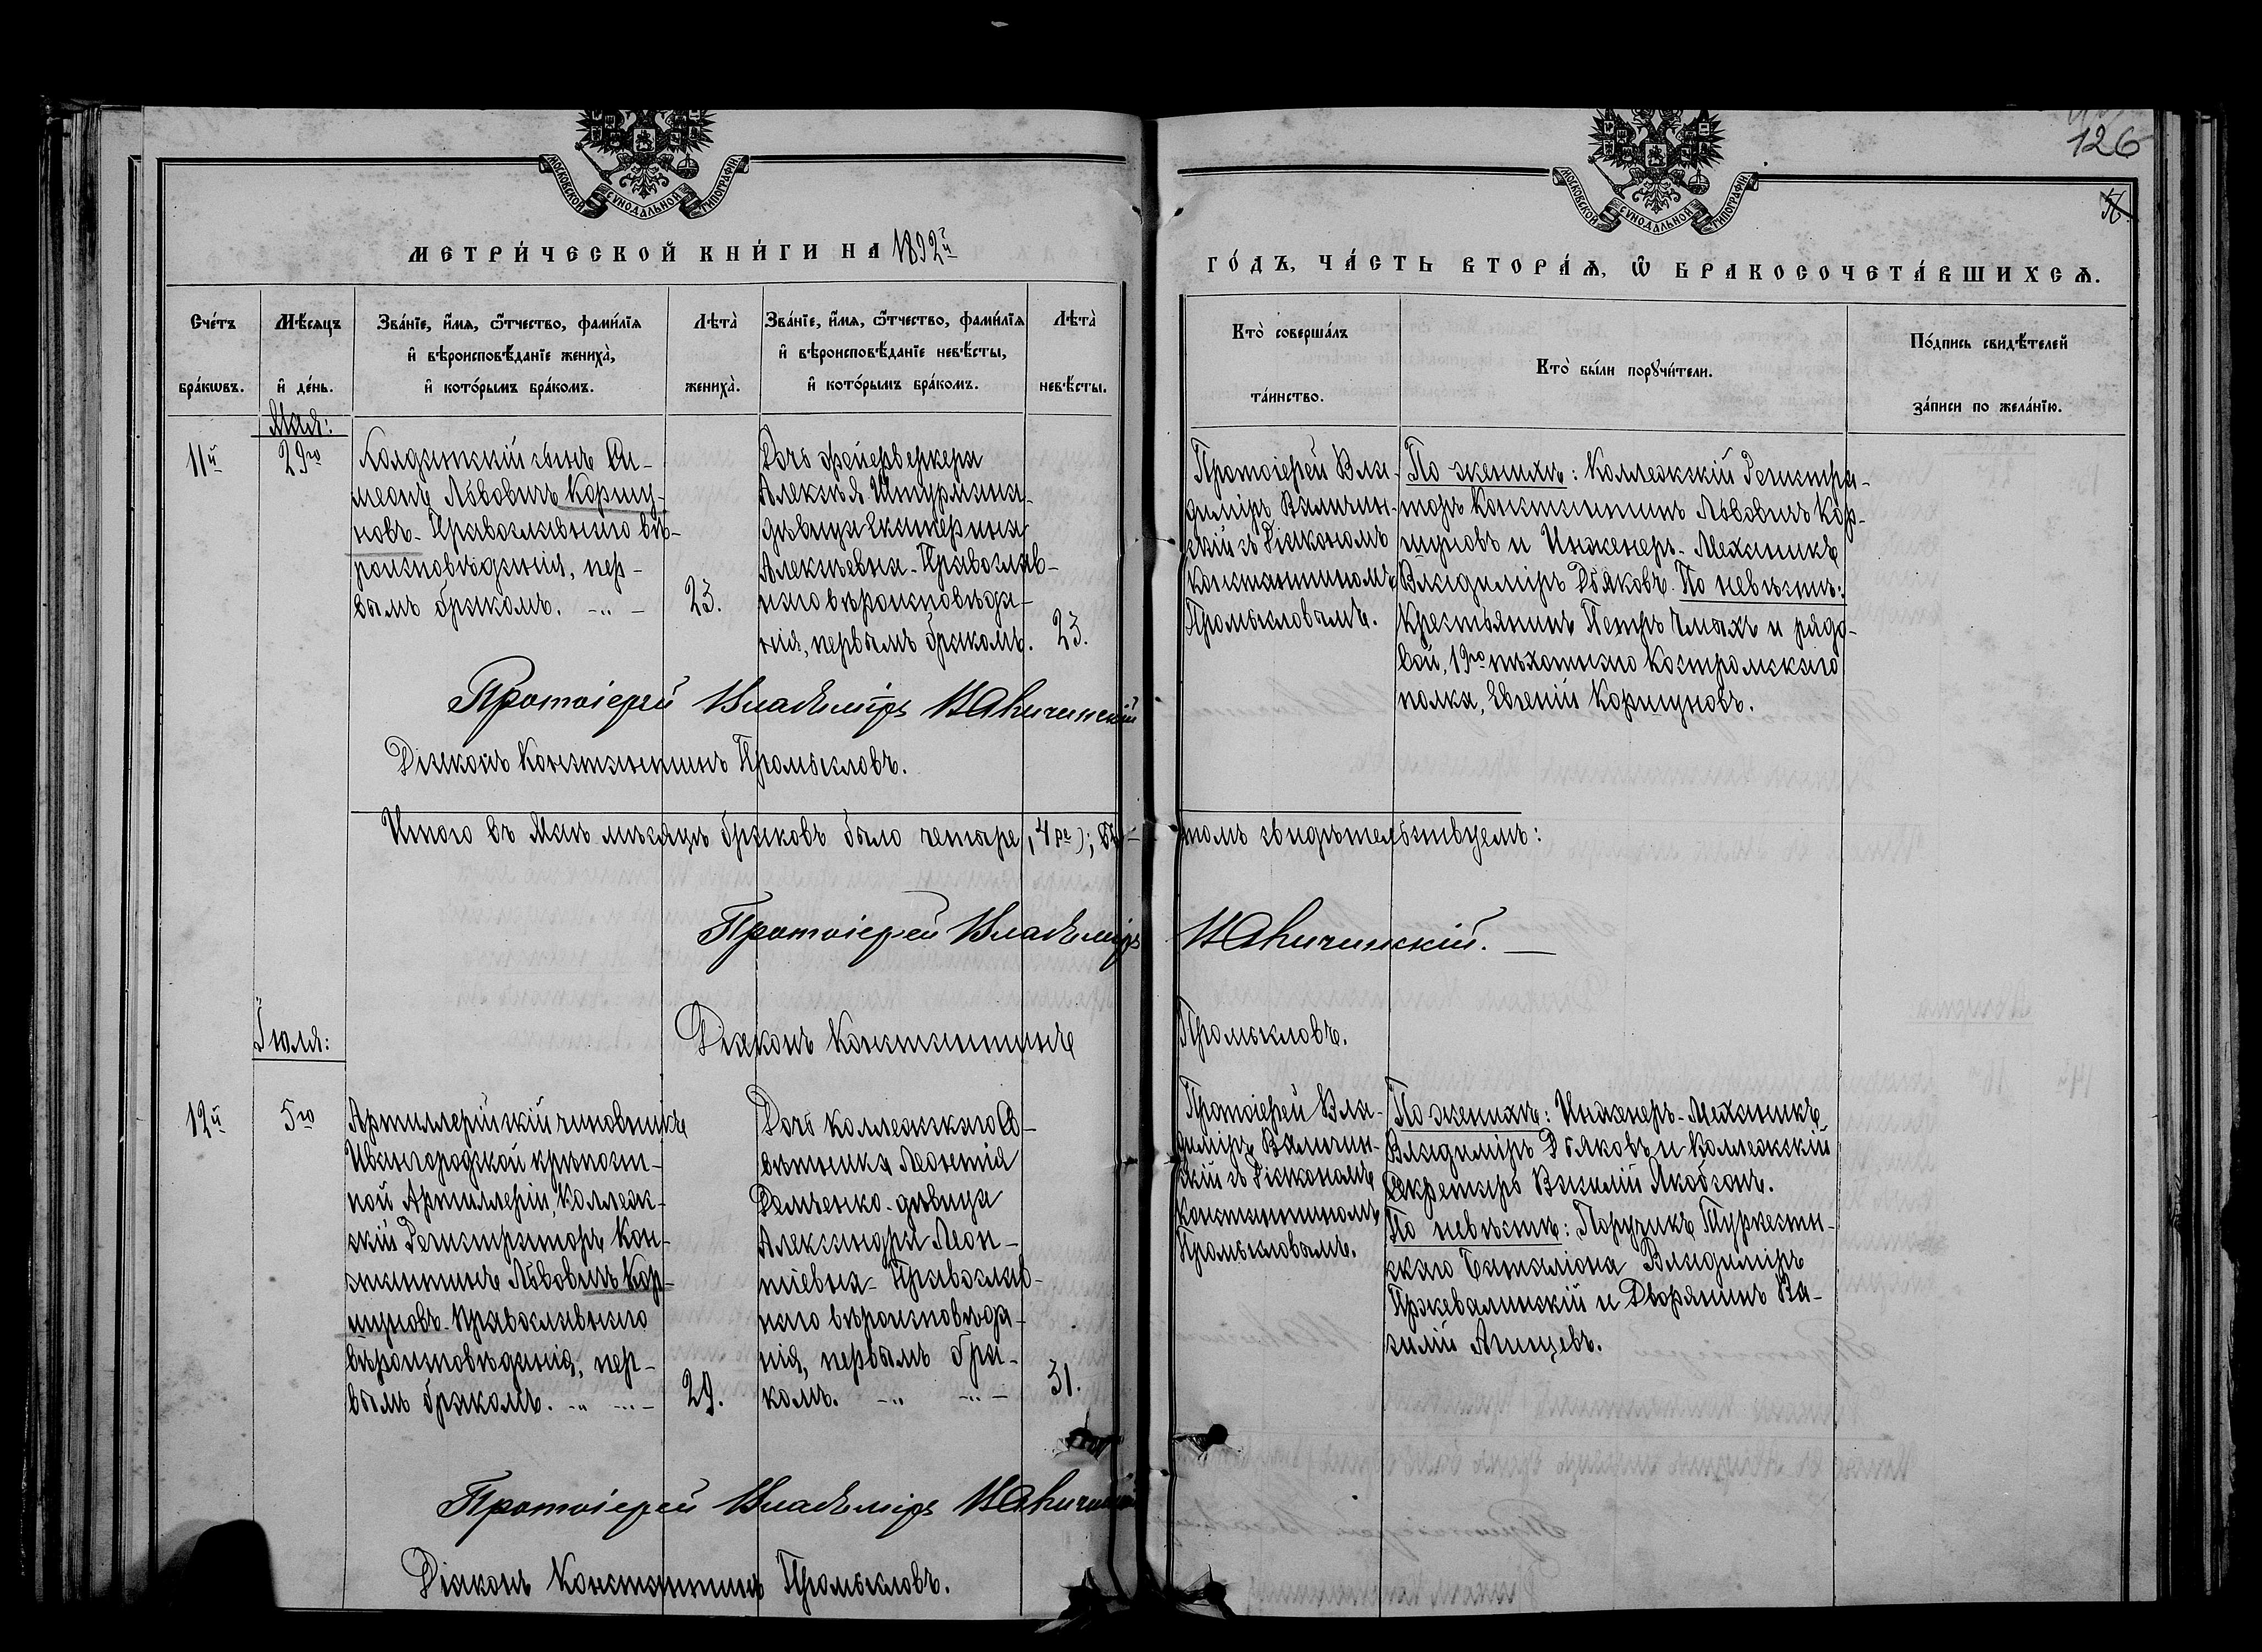 126
МОСКОВСКОЙ СУНОДАЛЬНОЙ ТИПОГРАФІИ
МОСКОВСКОЙ СУНОДАЛЬНОЙ ТИПОГРАФІИ
МЕТРИ́ЧЕСКОЙ КНИ́ГИ НА 1892й
ГО́ДЪ, ЧА́СТЬ ВТОРА́Ѧ, Ѽ БРАКОСОЧЕТА́ВШИХСѦ.
Сче́тъ
бра́кѡвъ.
Мѣ́сяцъ
и҆ де́нь.
Зва́нїе, и҆́мя, ѻ҆́тчество, фами́лїя
и҆ вѣроисповѣ́данїе жениха̀,
и҆ кото́рымъ бра́комъ.
Лѣта̀
жениха̀.
Зва́нїе, и҆́мя, ѻ҆́тчество, фами́лїя
и҆ вѣроисповѣ́данїе невѣ́сты,
и҆ кото́рымъ бра́комъ.
Лѣта̀
невѣ́сты.
Кто̀ соверша́лъ
та́инство.
Кто̀ бы́ли порꙋчи́тели.
По́дпись свидѣ́телей
за́писи по жела́нїю.
Мая:
11й
29го
сынъ Си-
меонъ Львовичъ Коршу-
новъ. Православнаго вѣ-
роисповѣданія, пер-
вымъ бракомъ.
23.
Дочь фейерверкера
Алексѣя Штурмана-
дѣвица Екатерина
Алексѣевна. Православ-
наго вѣроисповѣда-
нія, первымъ бракомъ.
23.
Протоіерей Вла-
диміръ Валичин-
скій съ Діакономъ
Константиномъ
Промысловымъ.
По женихѣ: Коллежскій Регистра-
торъ Константинъ Львовичъ Кор-
шуновъ и Инженеръ-Механикъ
Владиміръ Дьяковъ. По невѣстѣ:
Крестьянинъ Петръ и рядо-
вой, 19го пѣхотнаго Костромскаго
полка, Евгеній Коршуновъ.
Протоіерей Владиміръ Валичинскій
Діаконъ Константинъ Промысловъ.
Итого въ Маѣ мѣсяцѣ браковъ было четыре (4ре); въ
томъ свидѣтельствуемъ:
Протоіерей Владиміръ Валичинскій.
Діаконъ Константинъ Промысловъ.
Іюля:
12й
5го
Артиллерійскій чиновникъ
Ивангородской крѣпост-
ной Артиллеріи, Коллеж-
скій Регистраторъ Кон-
стантинъ Львовичъ Кор-
шуновъ. Православнаго
вѣроисповѣданія, пер-
вымъ бракомъ.
29.
Дочь Коллежскаго Со-
вѣтника Леонтія
Демченко-дѣвица
Александра Леон-
тіевна. Православ-
наго вѣроисповѣда-
нія, первымъ бра-
комъ.
31.
Протоіерей Вла-
диміръ Валичин-
скій съ Діакономъ
Константиномъ
Промысловымъ.
По женихѣ: Инженеръ-Механикъ
Владиміръ Дьяковъ и Коллежскій
Секретарь Василій Якобсонъ.
По невѣстѣ: Поручикъ Туркестан-
скаго Баталіона Владиміръ
Пржевалинскій и Дворянинъ Ва-
силій Агищевъ.
Протоіерей Владиміръ Валичинскій
Діаконъ Константинъ Промысловъ.